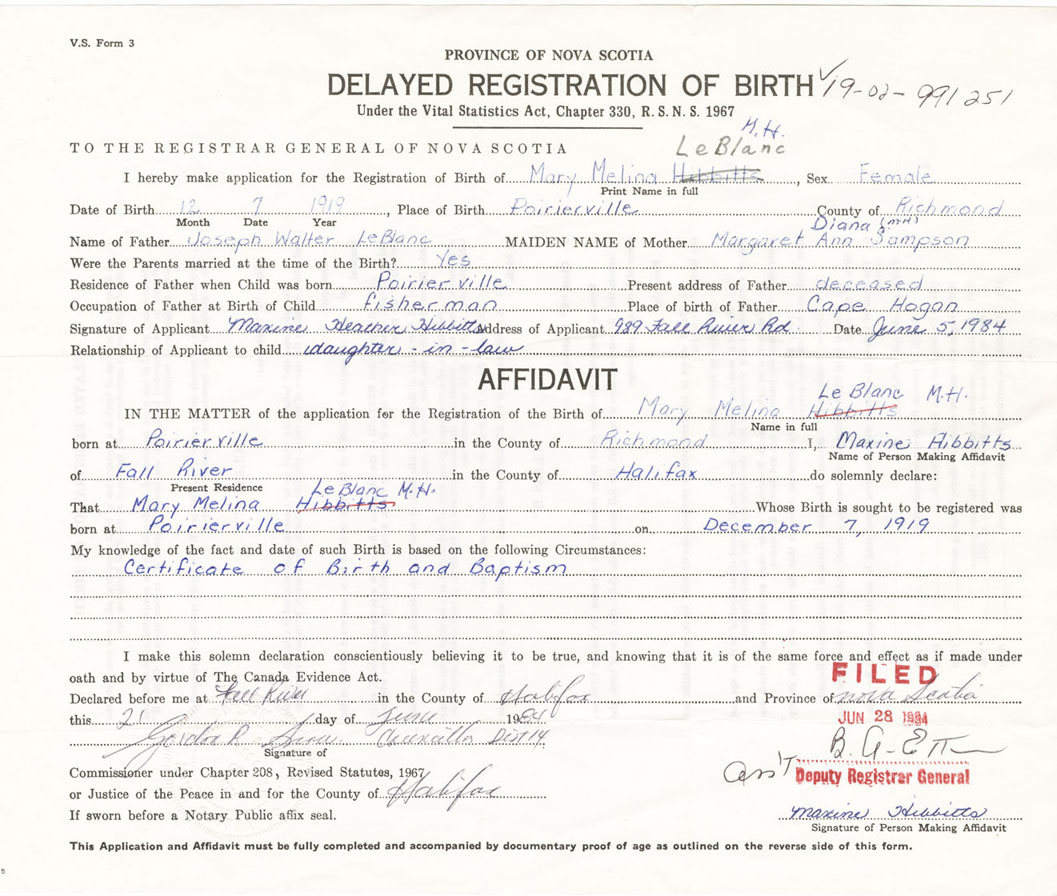 V.S. Form 3
PROVINCE OF NOVA SCOTIA
DELAYED REGISTRATION OF BIRTH 19-02-991251
Under the Vital Statistics Act, Chapter 330, R.S.N.S. 1967
M.H.
LeBlanc
TO THE REGISTRAR GENERAL OF NOVA SCOTIA
I hereby make application for the Registration of Birth of Mary Melina Hibbitts, Sex Female
Print Name in full
Date of Birth 12 7 1919, Place of Birth Poirierville County of Richmond
Month Date Year
Diana (MH)
Name of Father Joseph Walter LeBlanc MAIDEN NAME of Mother Margaret Ann Sampson
Were the Parents married at the time of the Birth? Yes
Residence of Father when Child was born Poirierville Present address of Father deceased
Occupation of Father at Birth of Child fisherman Place of birth of Father Cape Hogan
Signature of Applicant Maxine Heather Hibbitts Address of Applicant 989 Fall River Rd. Date June 5, 1984
Relationship of Applicant to child daughter-in-law
AFFIDAVIT
Le Blanc M.H.
IN THE MATTER of the application for the Registration of the Birth of Mary Melina Hibbitts
Name in full
born at Poirierville in the County of Richmond I, Maxine Hibbitts
Name of Person Making Affidavit
of Fall River in the County of Halifax do solemnly declare:
Present Residence
LeBlanc M.H.
That Mary Melina Hibbitts Whose Birth is sought to be registered was
born at Poirierville on December 7, 1919
My knowledge of the fact and date of such Birth is based on the following Circumstances:
Certificate of Birth and Baptism
I make this solemn declaration conscientiously believing it to be true, and knowing that it is of the same force and effect as if made under
oath and by virtue of The Canada Evidence Act.
FILED
Declared before me at Fall River in the County of Halifax and Province of Nova Scotia
this 21 day of June 1984
JUN 28 1984
Gordon R. Councillor Dist 14
Signature of
Commissioner under Chapter 208, Revised Statutes, 1967
Ass't Deputy Registrar General
or Justice of the Peace in and for the County of Halifax
If sworn before a Notary Public affix seal.
Maxine Hibbitts
Signature of Person Making Affidavit
This Application and Affidavit must be fully completed and accompanied by documentary proof of age as outlined on the reverse side of this form.
5